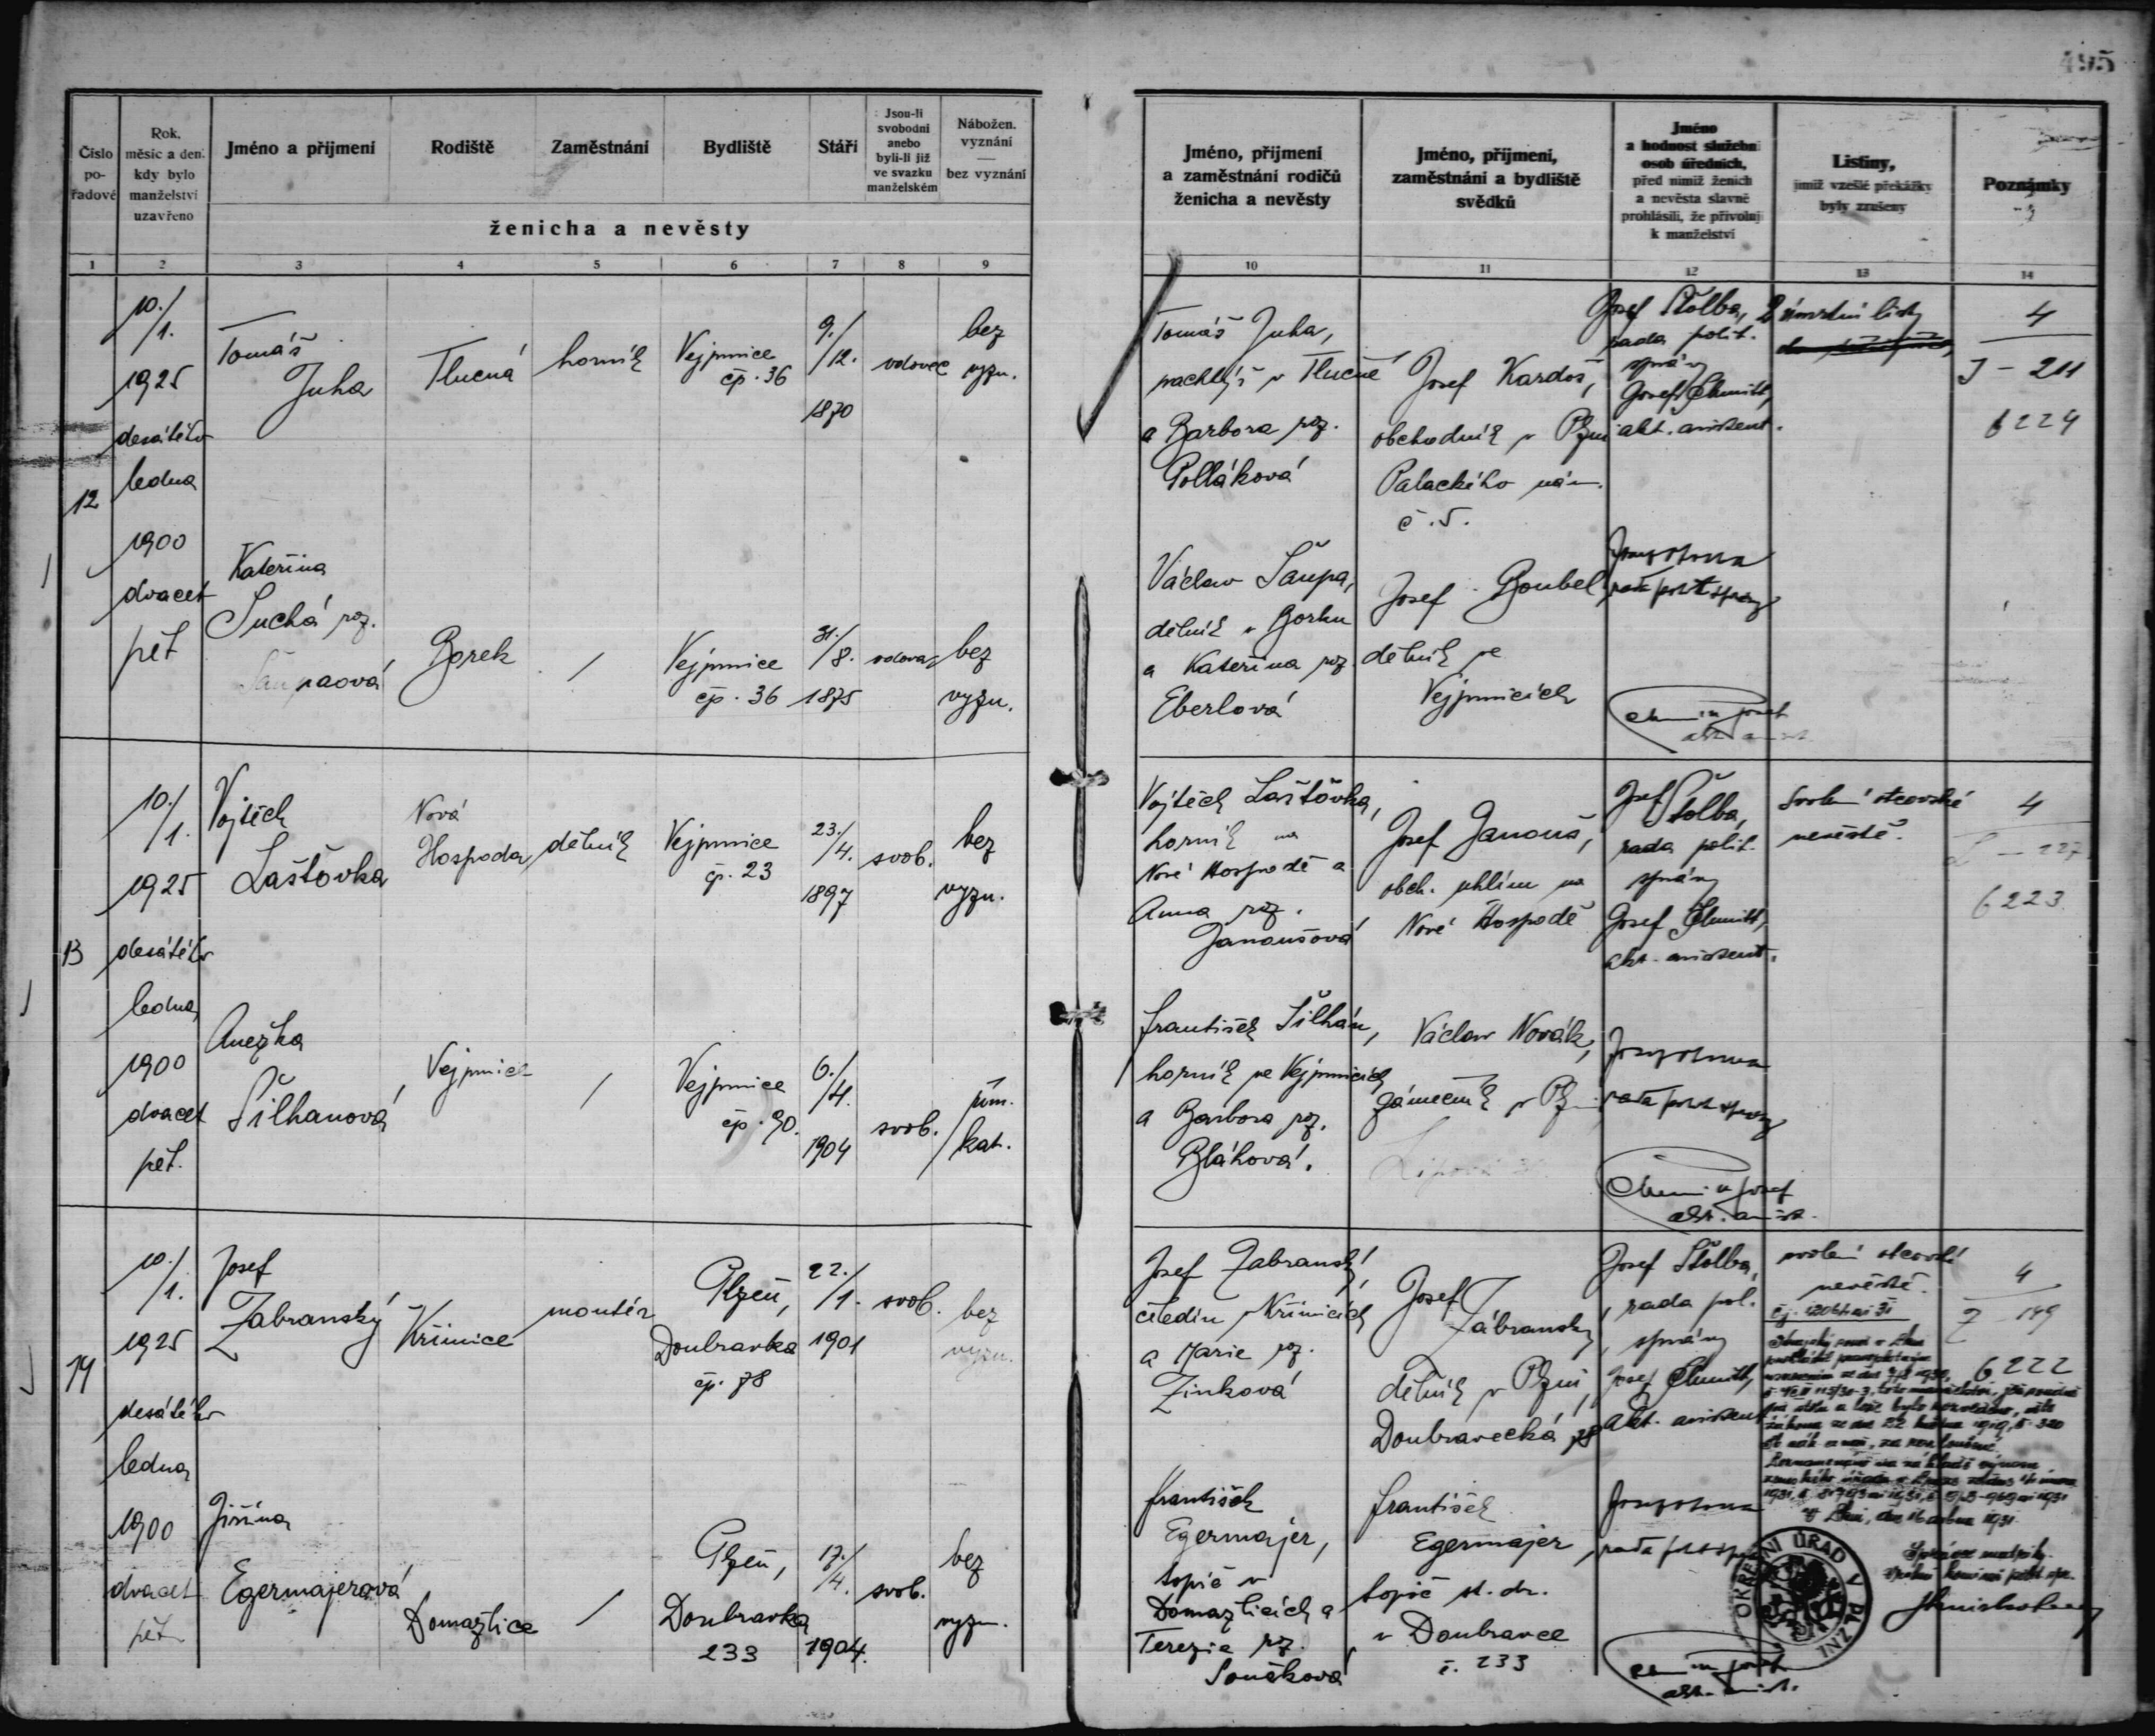 495
Číslo
po-
řadové
Rok,
měsíc a den,
kdy bylo
manželství
uzavřeno
Jméno a příjmení
Rodiště
Zaměstnání
Bydliště
Stáří
Jsou-li
svobodni
anebo
byli-li již
ve svazku
manželském
Nábožen.
vyznání
—
bez vyznání
ženicha a nevěsty
1 2 3 4 5 6 7 8 9
Jméno, příjmení
a zaměstnání rodičů
ženicha a nevěsty
Jméno, příjmení,
zaměstnání a bydliště
svědků
Jméno
a hodnost služební
osob úředních,
před nimiž ženich
a nevěsta slavně
prohlásili, že přivolují
k manželství
Listiny,
jimiž vzešlé překážky
byly zrušeny
Poznámky
10 11 12 13 14
12
10./
/1.
1925
desátého
ledna
1900
dvacet
pět
Tomáš
Juha
Tlucná
horník
Vejprnice
čp. 36
9./
/12.
1870
vdovec
bez
vyzn.
Kateřina
Suchá roz.
Šaupaová
Borek
/
Vejprnice
čp. 36
31./
/8.
1875
vdova
bez
vyzn.
Tomáš Juha,
pachtýř v Tlucné
a Barbora roz.
Polláková
Josef Kardoš,
obchodník v Plzni
Palackého nám.
č. 5.
Josef Štolba,
rada polit.
správy
Josef Chmitt,
akt. assistent.
2 úmrtní listy
4
J - 211
6224
Václav Šaupa,
dělník v Borku
a Kateřina roz.
Eberlová
Josef Boubel
dělník ve
Vejprnicích
13
10./
/1.
1925
desátého
ledna
1900
dvacet
pět.
Vojtěch
Laštovka
Nová
Hospoda
dělník
Vejprnice
čp. 23
23./
/4.
1897
svob.
bez
vyzn.
Anežka
Šilhanová
Vejprnice
/
Vejprnice
čp. 90.
6./
/4.
1904
svob.
řím.
kat.
Vojtěch Laštovka,
horník na
Nové Hospodě a
Anna roz.
Janoušová
Josef Janouš,
obch. uhlím na
Nové Hospodě
Josef
Štolba,
rada polit.
správy
Josef Chmitt,
akt. assistent.
Svolení otcovské
nevěstě.
4
L - 227
6223
František Šilhán,
horník ve Vejprnicích
a Barbora roz.
Bláhová.
Václav Novák,
zámečník v Plzni
14
10./
/1.
1925
desátého
ledna
1900
dvacet
pět
Josef
Zábranský
Křimice
montér
Plzeň,
Doubravka
čp. 78
22./
/1.
1901
svob.
bez
vyzn.
Jiřina
Egermajerová
Domažlice
/
Plzeň,
Doubravka
233
17./
/4.
1904.
svob.
bez
vyzn.
Josef Zábranský,
čeledín v Křimicích
a Marie roz.
Zinková
Josef
Zábranský
dělník v Plzni,
Doubravecká 78
Josef Štolba,
rada pol.
správy
Josef Chmitt,
akt. assistent
svolení otcovské
nevěstě.
4
Z 149
6222
František
Egermajer,
topič v
Domažlicích a
Terezie roz.
Součková
František
Egermajer,
topič st. dr.
v Doubravce
č. 233
OKRESNÍ ÚŘAD V PLZNI